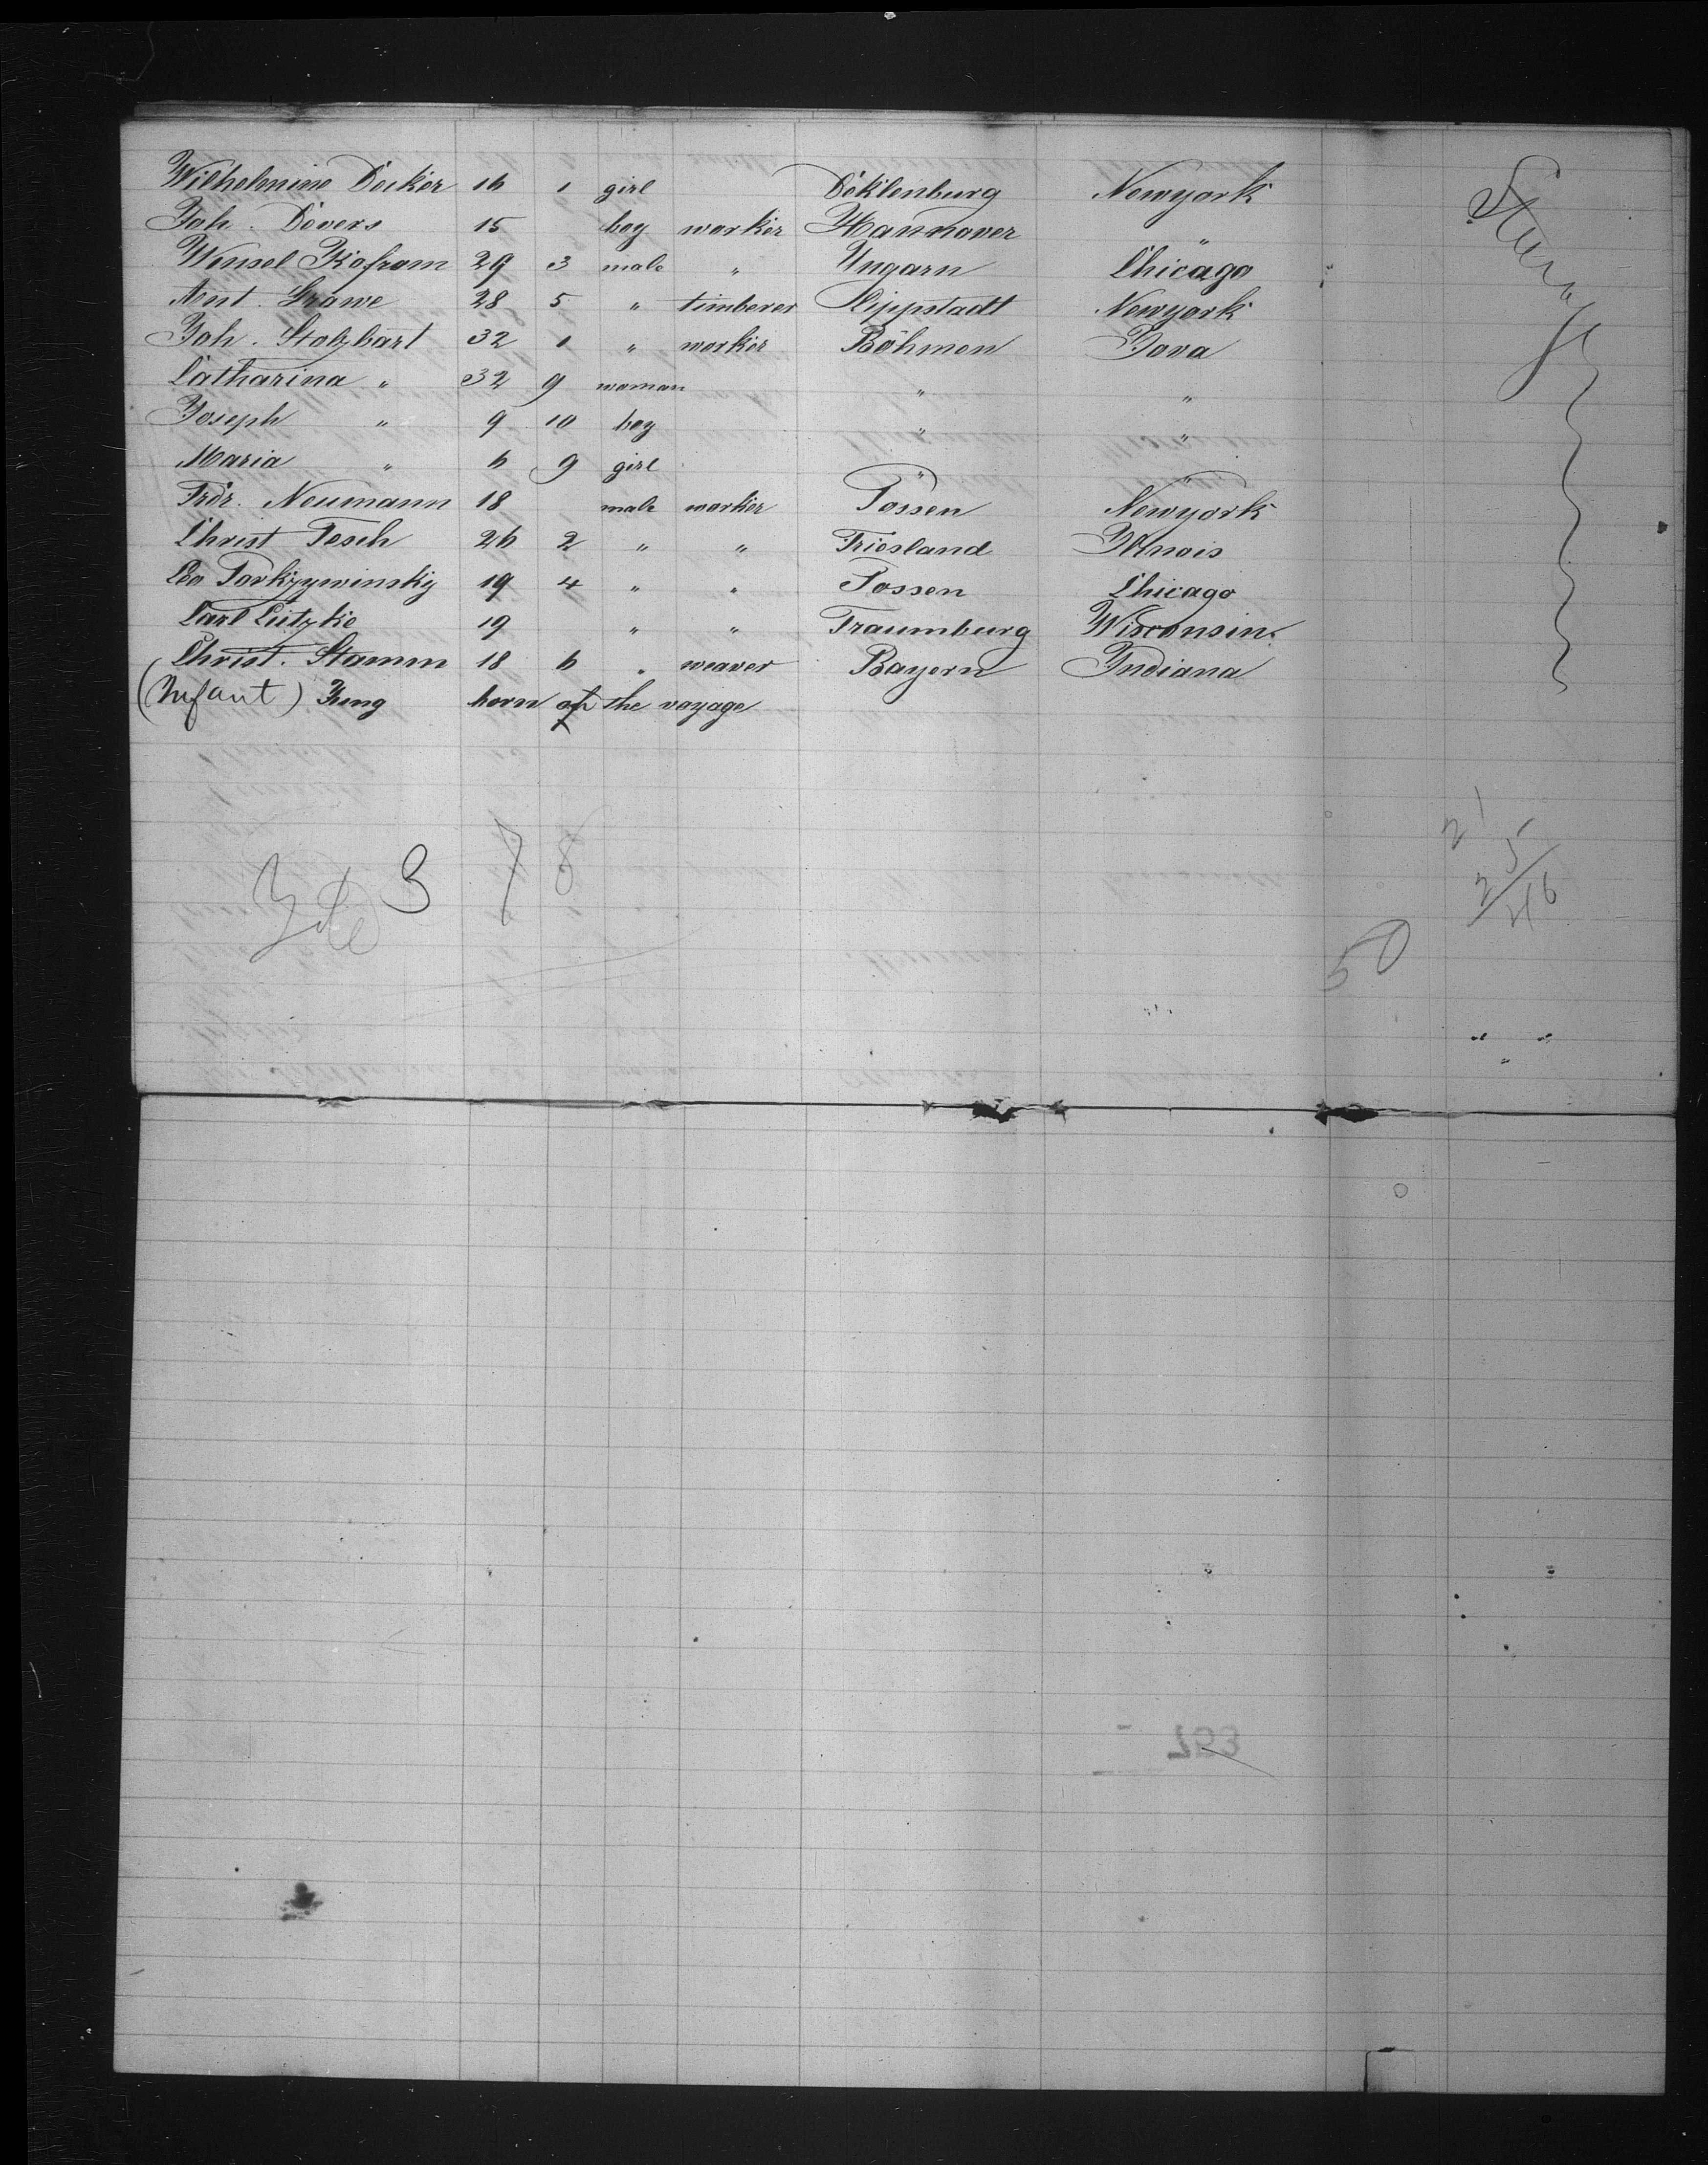 Wilhelmine Decker 16 1 girl Deklenburg Newyork
Joh. Devers 15 boy worker Hannover "
Wensel Kofrom 29 3 male " Ungarn Chicago
Ant. Grawe 28 5 " timberer Lippstadt Newyork
Joh. Stolzbart 32 1 " worker Böhmen Jova
Catharina " 32 9 woman " "
Joseph " 9 10 boy " "
Maria " 6 9 girl " "
Frdr. Neumann 18 male worker Possen Newyork
Christ Tesch 26 2 " " Friesland Illinois
Leo 19 4 " " Possen Chicago
Carl Lützke 19 " " Traumburg Wisconsin.
Christ. Stamm 18 6 " weaver Bayern Indiana
(Infant) Jung born on the voyage
3 78
21
25
46
50
753